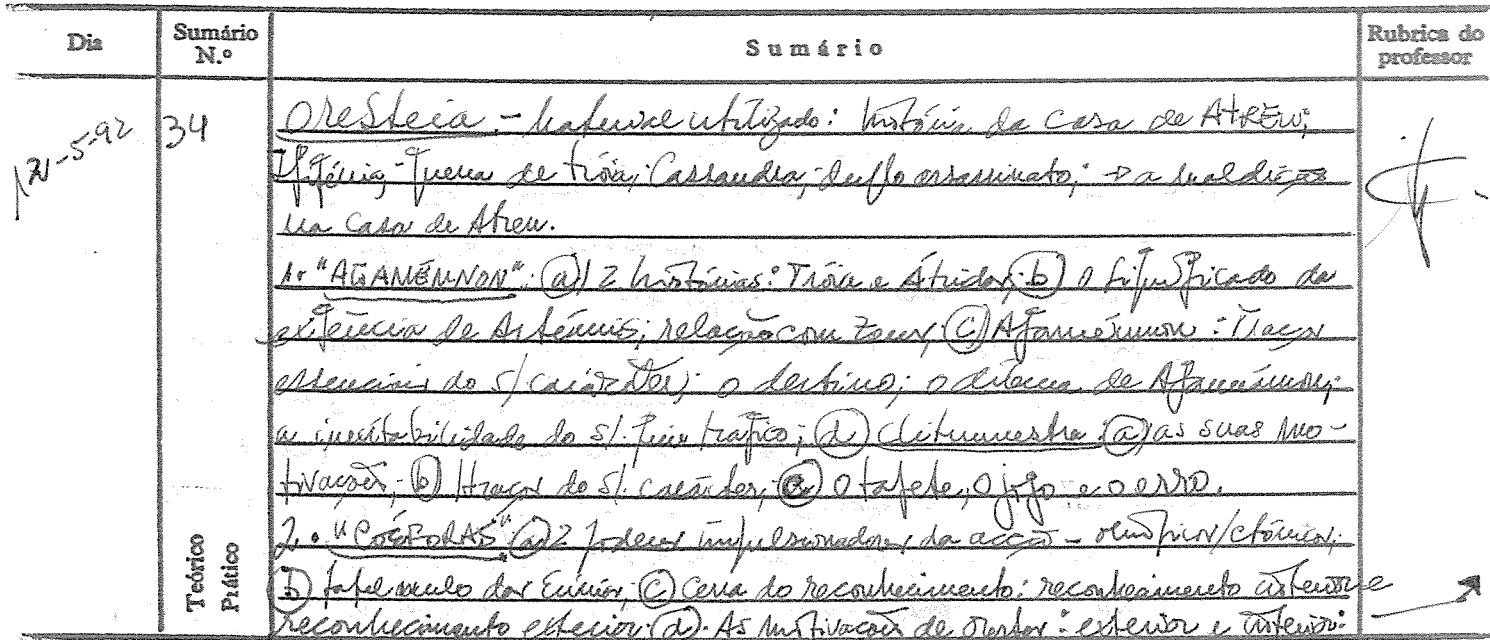 Dia
Sumário N.º
Sumário
Rubrica do professor
5-92
34
Oresteia - Material utilizado: história da casa de ATREU;
Ifigénia; guerra de Tróia; Cassandra; duplo assassinato; → a maldição
na casa de Atreu.
1. "AGAMÉMNON": (a) 2 histórias: Tróia e Átridas; (b) O significado da
exigência de Artémis; relação com Zeus; (c) Agamémnon: Traços
essenciais do s/ carácter; o destino; o dilema de Agamémnon;
a inevitabilidade do s/. fim trágico; (d) Clitemnestra (a) as suas mo-
tivações; (b) traços do s/. carácter; (c) O tapete, o jogo e o erro.
2. "COÉFORAS" (a) 2 poderes impulsionadores da acção - olímpicos/ctónicos;
(b) papel das Erínias; (c) Cena do reconhecimento: reconhecimento interior e
reconhecimento exterior; (d). As motivações de Orestes: exterior e interior:
Teórico
Prático